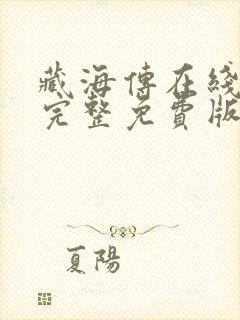 藏海傳在綫
完整免費版
夏陽